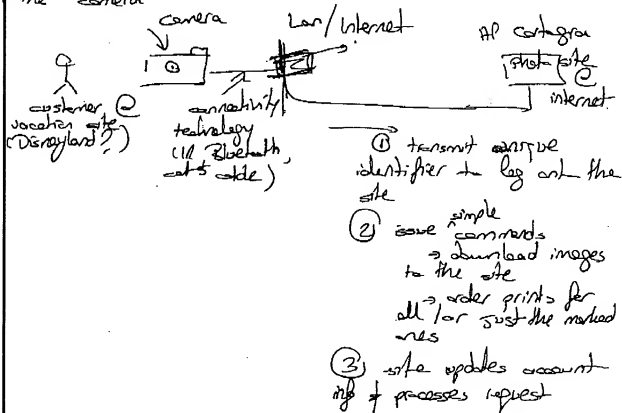 the camera
camera
Lan/Internet
HP Cartogra
photo site
@
internet
customer @
vacation site
(Disneyland?)
connectivity
technology
(IR Bluetooth,
cat5 cable)
① transmit unique
identifier to log onto the
site
② issue simple
commands
→ download images
to the site
→ order prints for
all/or just the marked
ones
③ site updates account
info & processes request